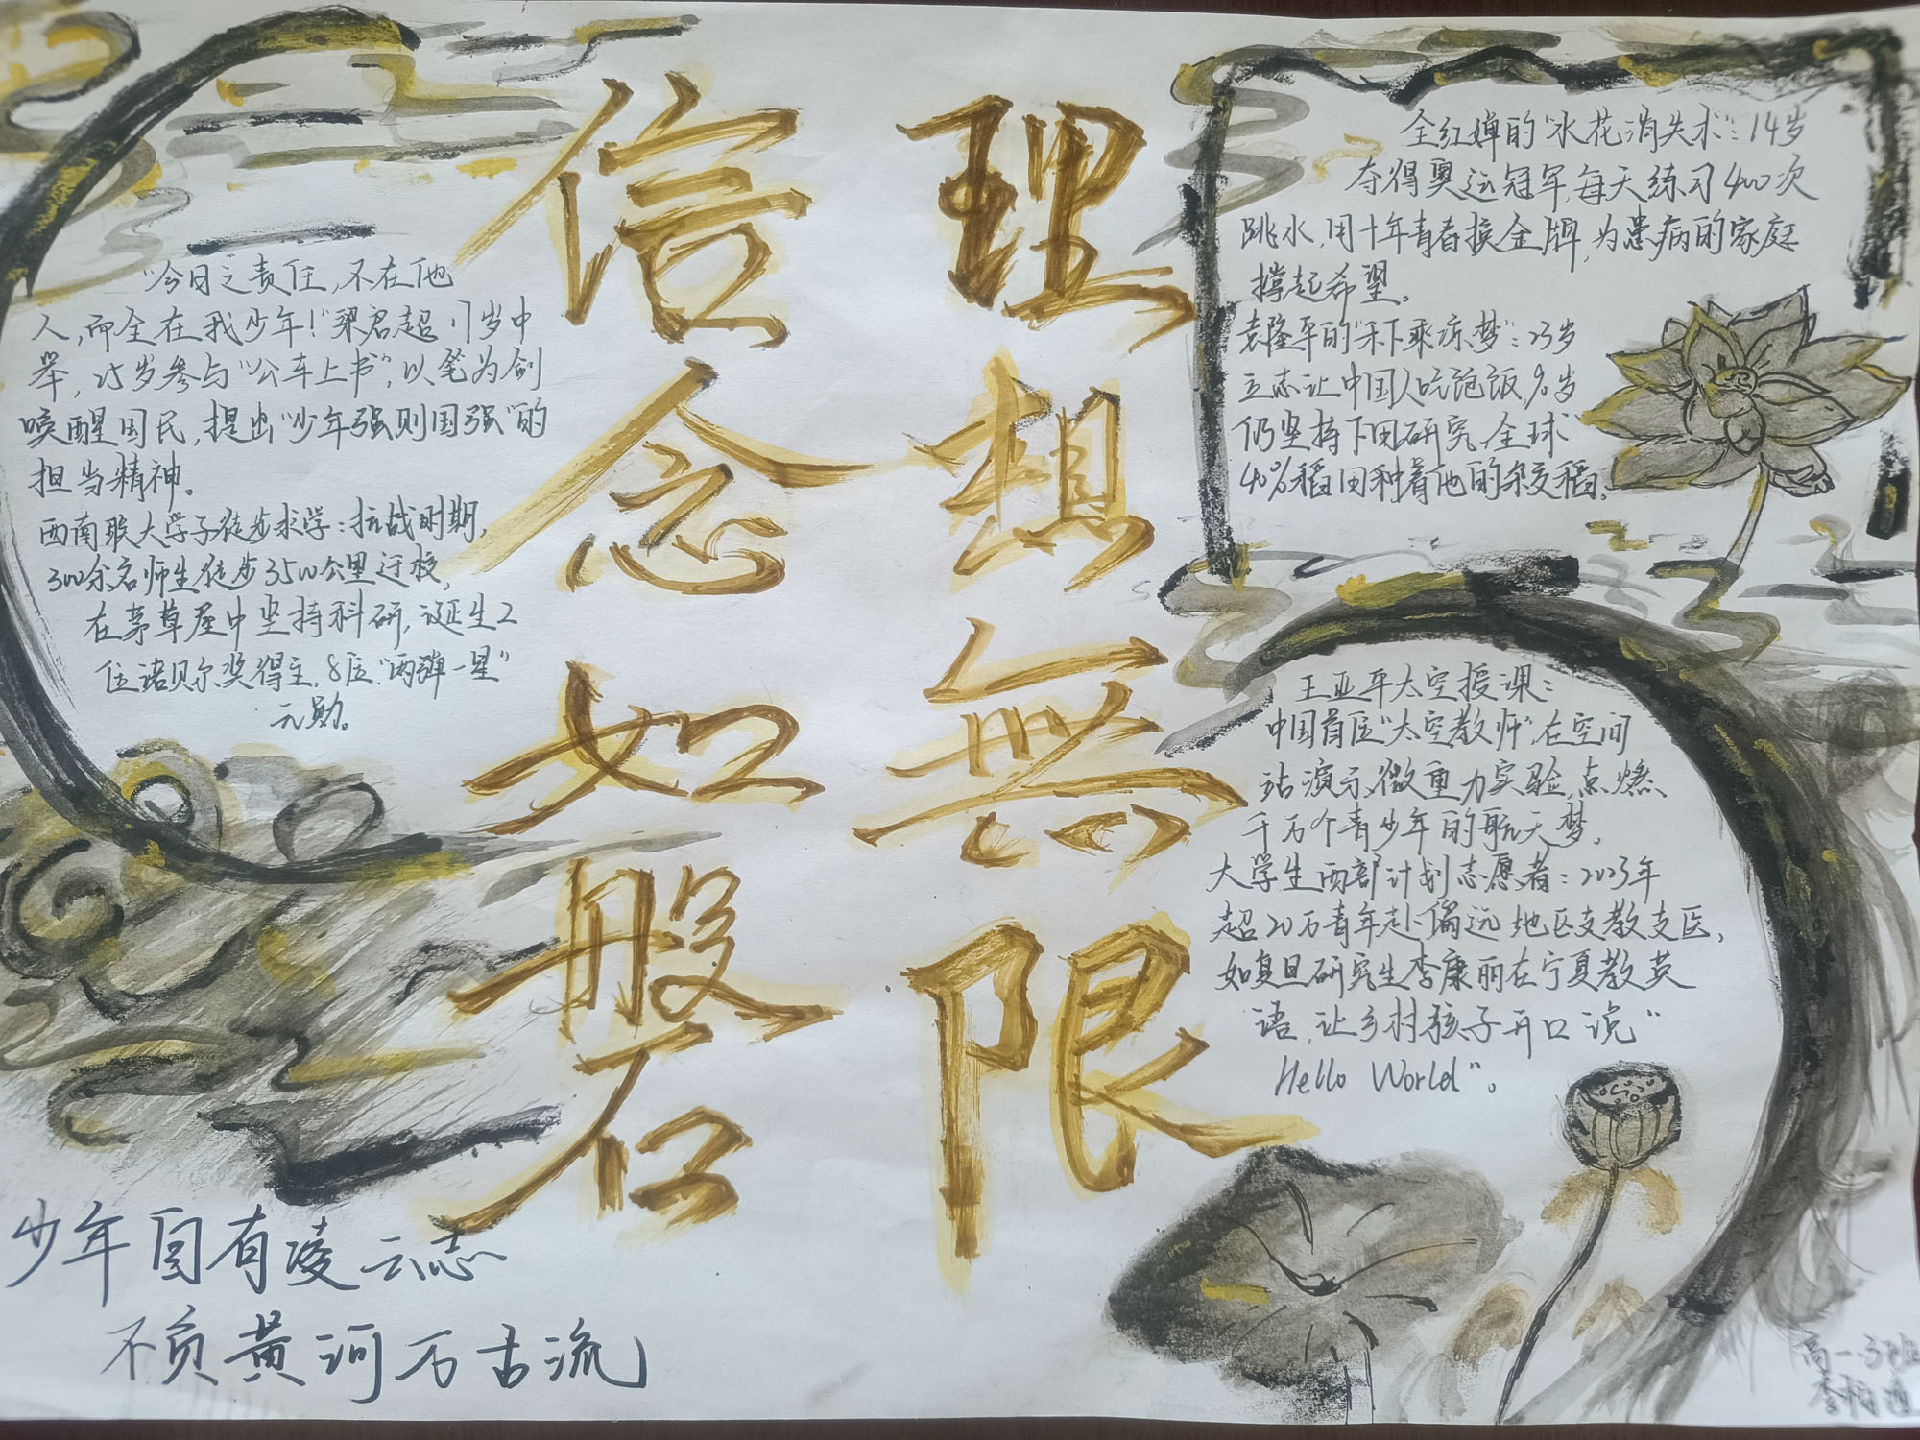 理想無限
信念如般石
"今日之责任,不在他
人,而全在我少年!"梁启超17岁中
举,25岁参与"公车上书",以笔为剑
唤醒国民,提出"少年强则国强"的
担当精神。
西南联大学子徒步求学:抗战时期,
300余名师生徒步3500公里迁校,
在茅草屋中坚持科研,诞生2
位诺贝尔奖得主,8位"两弹一星"
元勋。
全红婵的"水花消失术":14岁
夺得奥运冠军,每天练习400次
跳水,用十年青春换金牌,为患病的家庭
撑起希望。
袁隆平的"禾下乘凉梦":23岁
立志让中国人吃饱饭,90岁
仍坚持下田研究,全球
40%稻田种着他的杂交稻。
王亚平太空授课:
中国首位"太空教师",在空间
站演示微重力实验,点燃
千万个青少年的航天梦。
大学生西部计划志愿者:2023年
超20万青年赴偏远地区支教支医,
如复旦研究生李康丽在宁夏教英
语,让乡村孩子开口说"
Hello World"。
少年自有凌云志
不负黄河万古流
高一3班